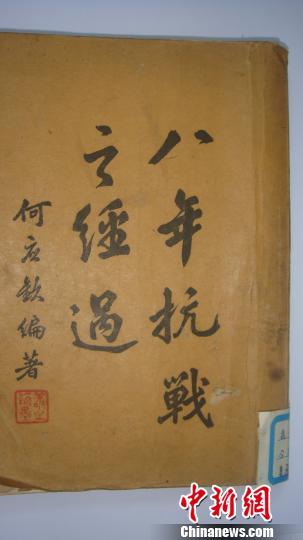 八年抗戰
之經過
何应欽编著
中新網
Chinanews.com